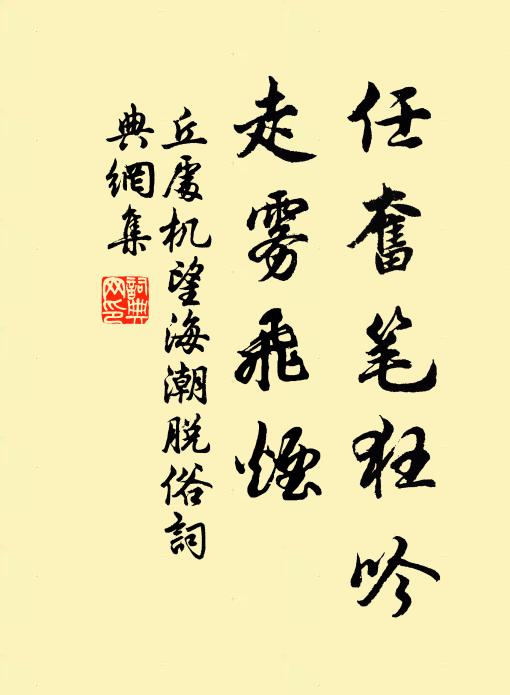 任奮笔狂吟
走雾飛煙
丘處机望海潮脱俗詞
典網集
詞典
网印